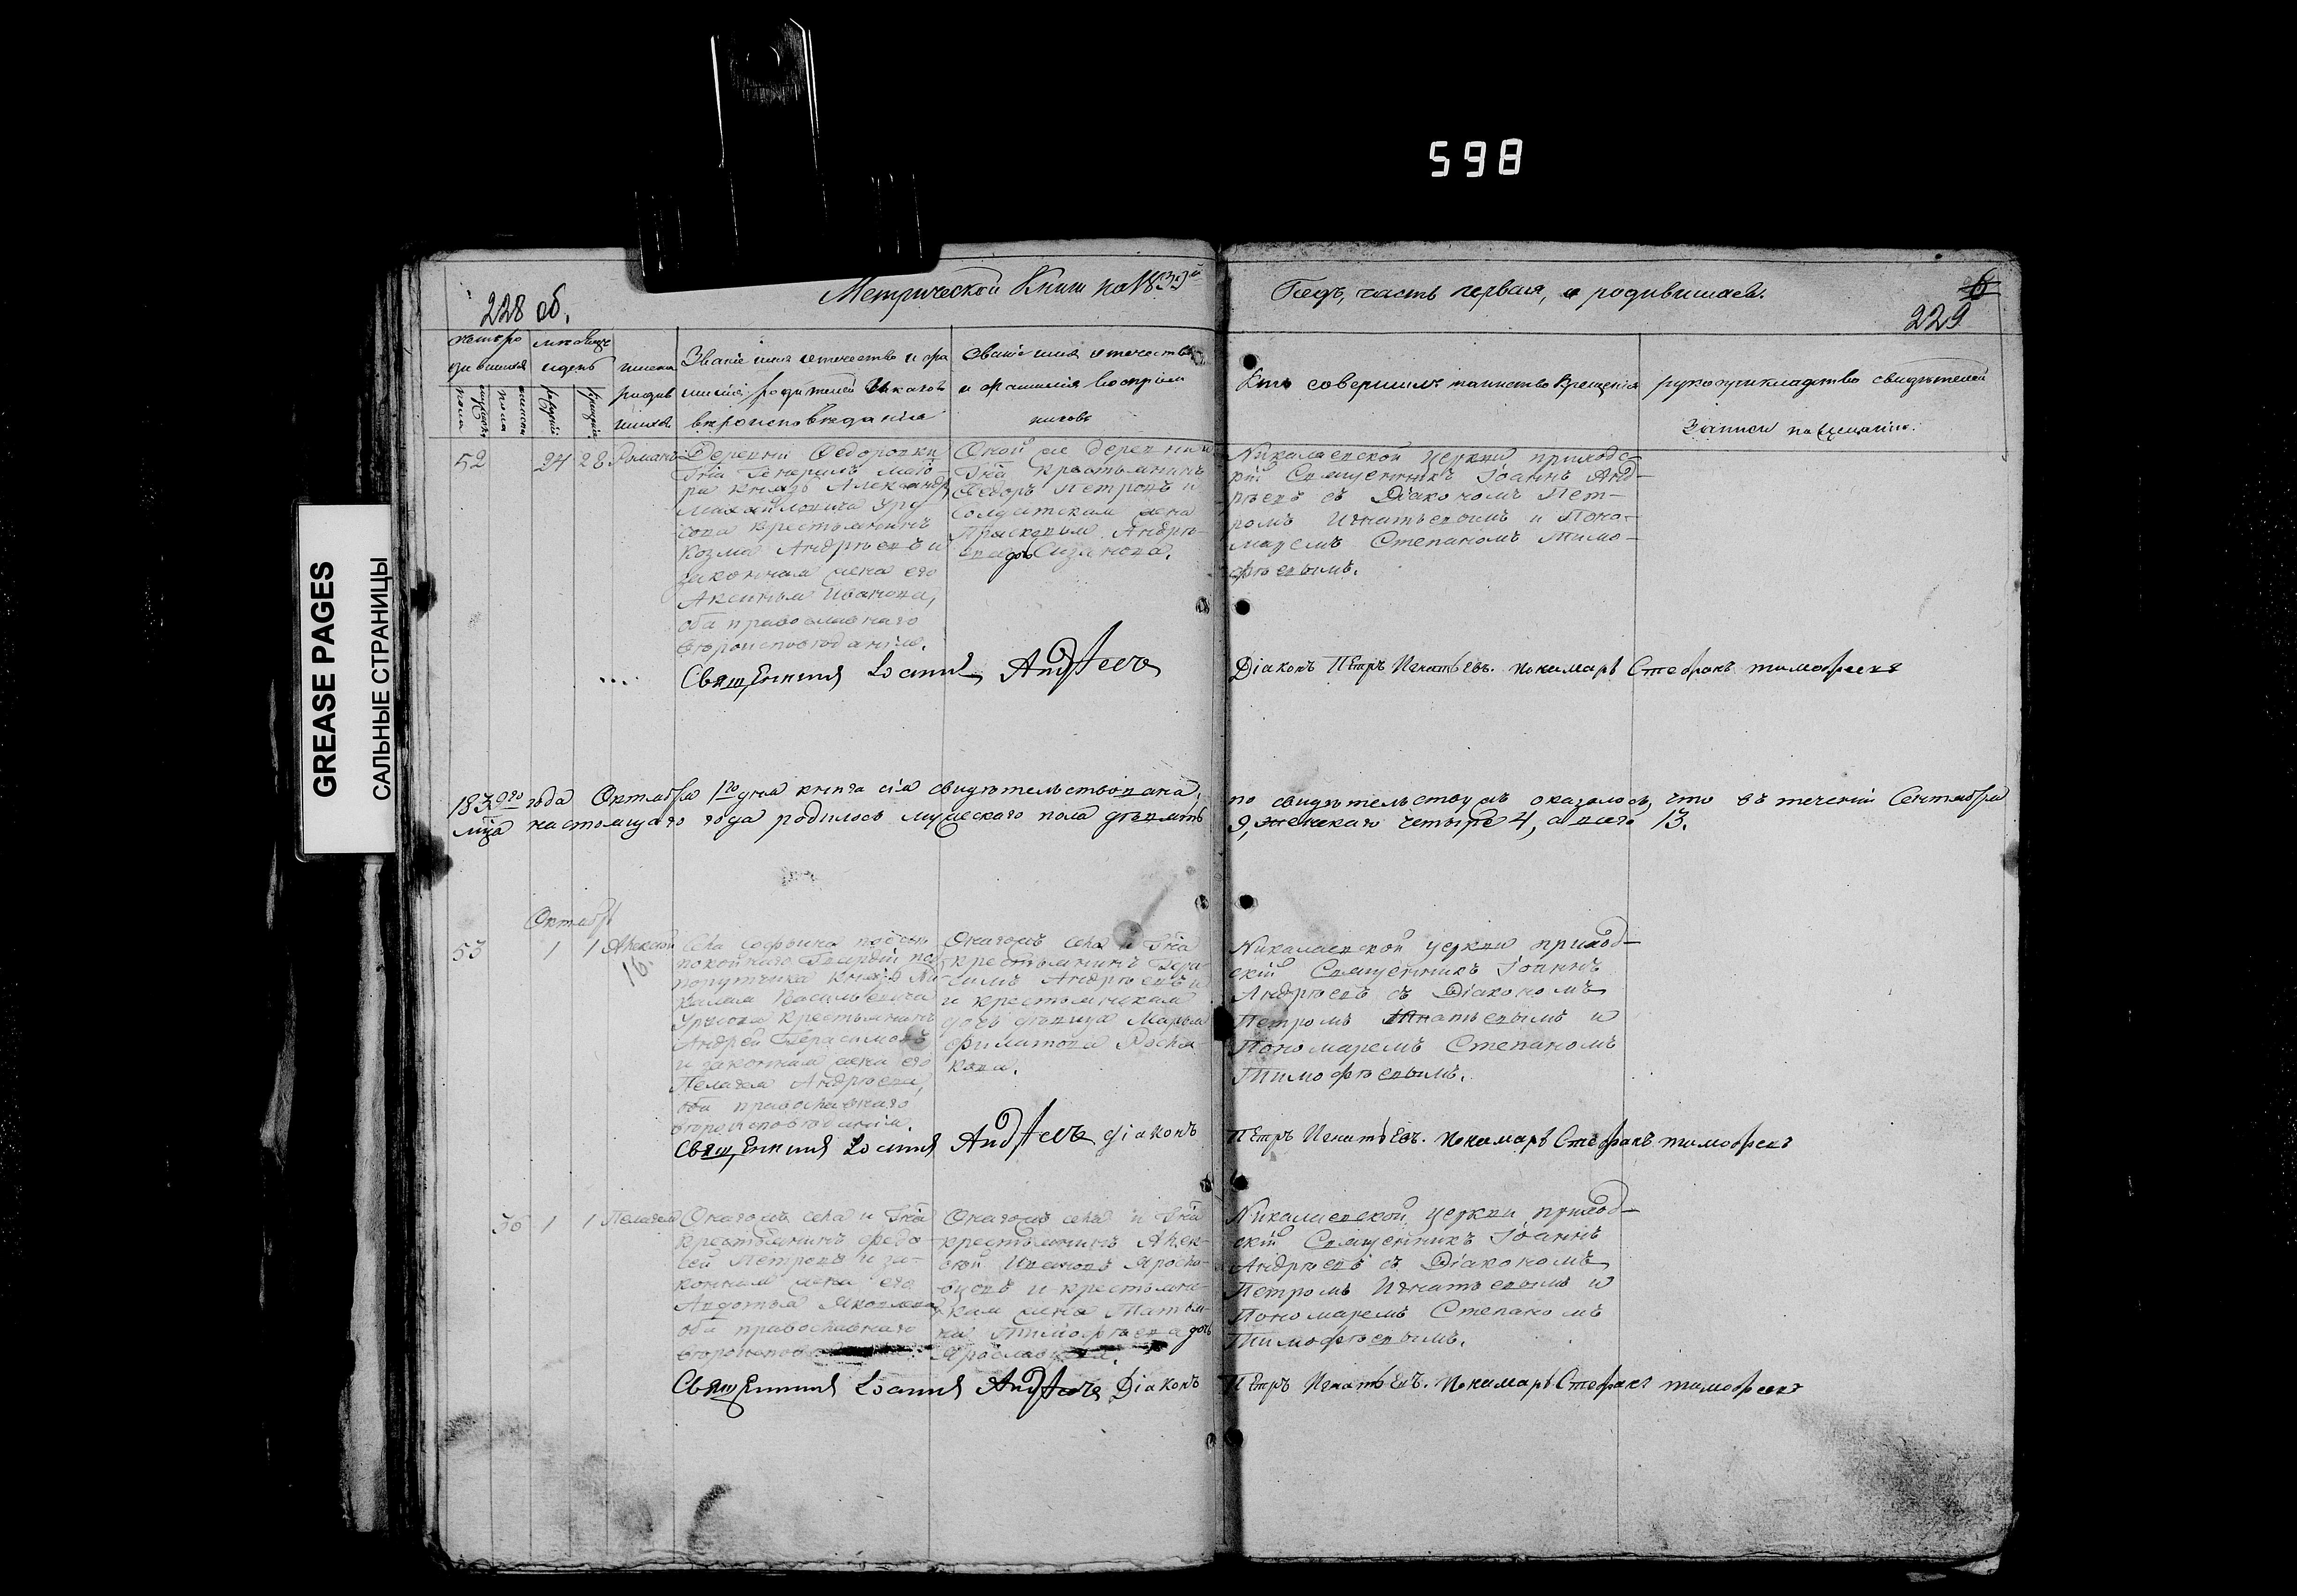 598
GREASE PAGES
САЛЬНЫЕ СТРАНИЦЫ
228 об.
Метрической Книги на 1839й
Годъ, часть первая, о родившихся.
6
229
Званіе имя отечество и фа
миліи родителей и какова
вероисповѣданія
званіе имя отечество
и фамилія воспріем
никовъ
Кто совершилъ таинство Крещенія
рукоприкладство свидѣтелей
записи по желанію.
52
24 28 Романъ
Деревни Федоровки
Гна Генералъ маіо-
ра князя Александр
Михайловича Уру
сова крестьянинъ
Козма Андрѣевъ и
законная жена его
Аксинья Иванова,
оба православнаго
вѣроисповѣданія.
Оной же деревни и
Гна крестьянинъ
Федоръ Петровъ и
солдатская жена
Прасковья Андрѣ-
ева дочь
Николаевской церкви приходс-
кій Священникъ Іоаннъ Анд-
рѣевъ съ Діакономъ Пет-
ромъ Игнатьевымъ и Поно-
маремъ Степаномъ Тимо-
фѣевымъ.
Священникъ Іоаннъ Андреевъ
Діаконъ Петръ Игнатьевъ. Пономарь Стефанъ тимофеевъ
1839го года Октября 1го дня книга сія свидѣтельствована,
по свидѣтельству оказалось, что въ теченіи Сентября
мца настоящаго года родилось мужескаго пола девять
9, женскаго четыре 4, а всего 13.
Октябрь
53
1 1 Алексей
16.
Села Софьина
покойнаго Гвардіи по
порутчика Князя Ми
хаила Васильевича
Урусова крестьянинъ
Андрей Герасимовъ
и законная жена его
Пелагея Андрѣева,
оба православнаго
вѣроисповѣданія.
Онагожъ села и Гна
крестьянинъ Гера-
симъ Андрѣевъ и
и крестьянская
дочь девица Марья
Филипова
Николаевской церкви приход-
скій Священникъ Іоаннъ
Андрѣевъ съ Діакономъ
Петромъ Игнатьевымъ и
Пономаремъ Степаномъ
Тимофѣевымъ.
Священникъ Іоаннъ Андреевъ діаконъ
Петръ Игнатьевъ. Пономарь Стефанъ тимофеевъ
36 1 1 Пелагея
Онагожъ села и Гна
крестьянинъ Федо
сей Петровъ и за-
конная жена его
Авдотья Яковлева
оба православнаго
вѣроиспов
Онагожъ села и Гна
крестьянинъ Алек-
сѣй Ивановъ Яросла-
вцевъ и крестьянс-
кая жена Татья-
на Тимофѣева дочь
Николаевской церкви приход-
скій Священникъ Іоаннъ
Андрѣевъ съ Діакономъ
Петромъ Игнатьевымъ и
Пономаремъ Степаномъ
Тимофѣевымъ.
Священникъ Іоаннъ Андреевъ Діаконъ
Петръ Игнатьевъ. Пономарь Стефанъ тимофеевъ